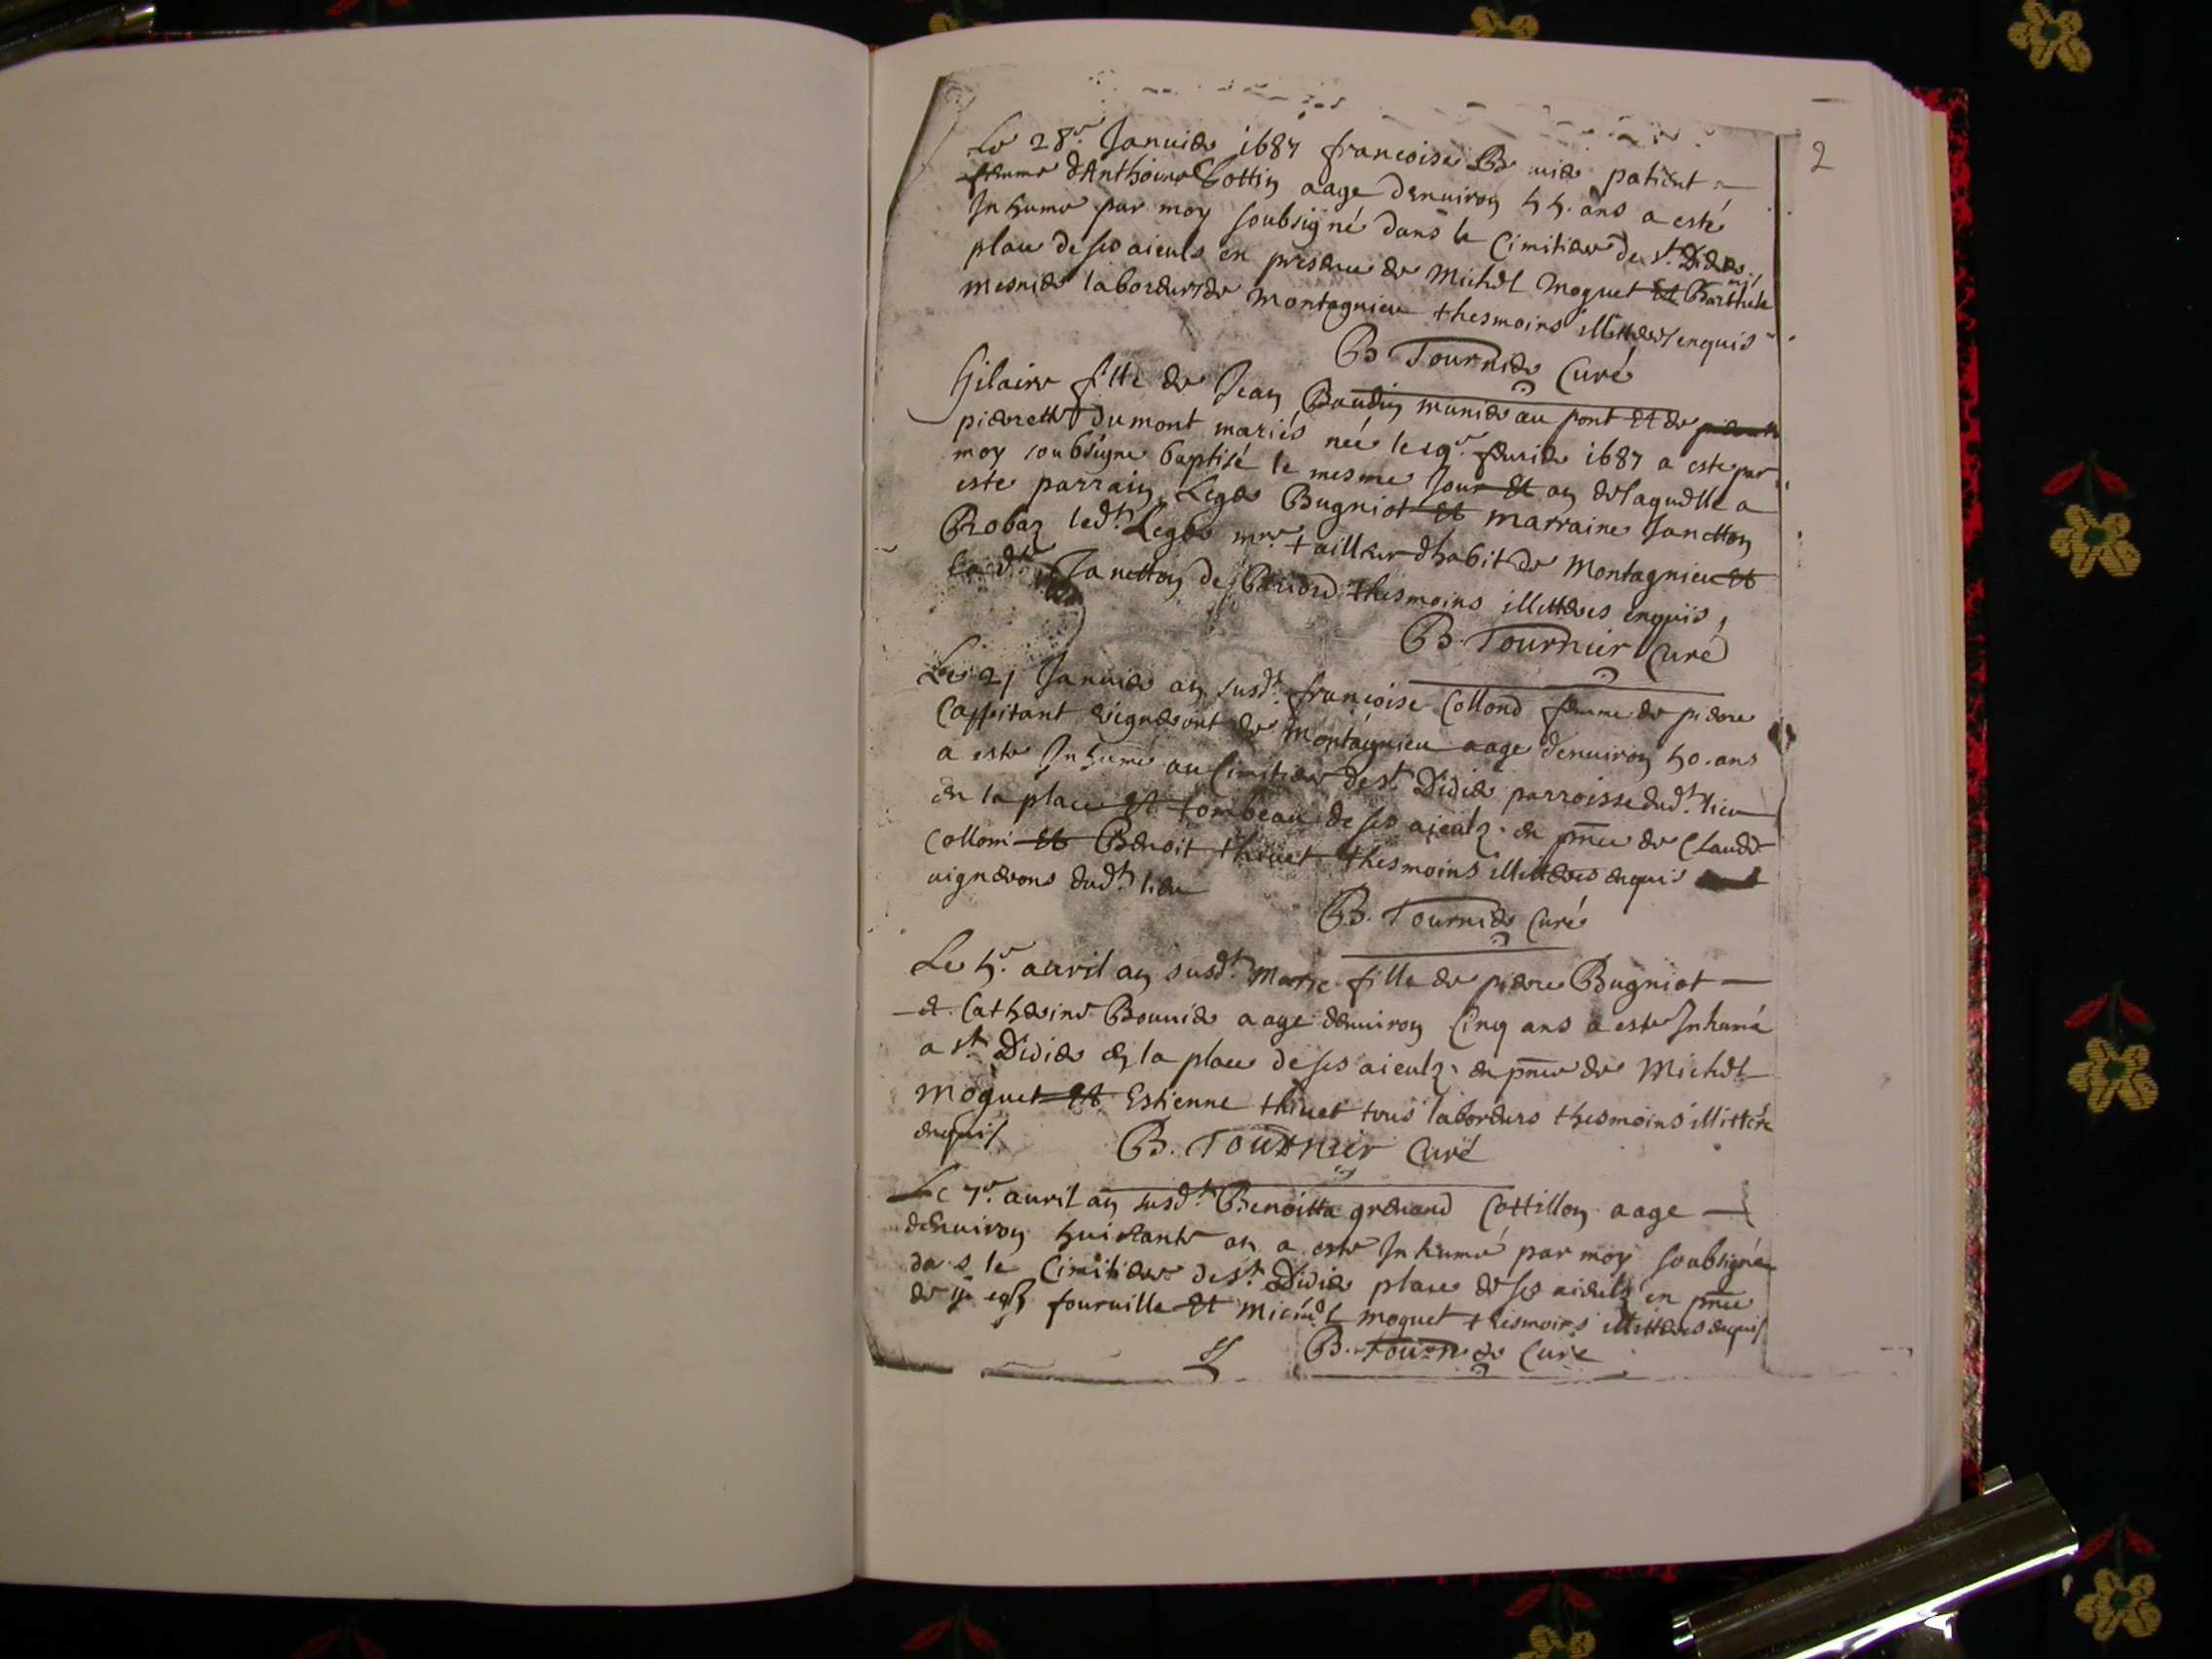 2
Le 28e. Januier 1687 francoise patient
femme dAnthoine Cottin aage denuiron 55. ans a esté
Inhume par moy soubsigné dans le Cimitiere de st. Didier
place de ses aieuls en presence de Michel Moguet Et Barthele
mesnier laboreurs de Montagnieu thesmoins illitteres enquis
B. Tournier Curé
Hilaire fille de Jean Baudin munier au pont Et de
pierrette dumont mariés née le 19e. feurier 1687 a este par
moy soubsigne baptisé le mesme Jour Et an de laquelle a
este parrain Leger Bugniot Et marraine Janetton
Probaz led.t Leger mre. tailleur dhabit de Montagnieu Et
lad.te Janetton de thesmoins illitteres enquis,
B. Tournier Curé
Le 21 Januier an susd.t francoise Collond femme de pierre
Cappitant vigneront de Montagnieu aage denuiron 50. ans
a este Inhumé au Cimitiere de st. Didier parroisse dud.t lieu
en la place Et tombeau de ses aieulz. en pnce de Claude
Collom Et Benoit thiuet thesmoins illitteres enquis
uignerons dud.t lieu
B. Tournier Curé
Le 5e. auril an susd.t Marie fille de pierre Bugniot
et Catherine Bouuier aage denuiron Cinq ans a este Inhumé
a st. Didier en la place de ses aieulz. en pnce de Michel
Moguet Et Estienne thiuet tous laboreurs thesmoins illittere
enquis
B. Tournier Curé
Le 7e. auril an susd.t Benoitta greuand Cottillon aage
denuiron huictante an a este Inhumé par moy soubsigné
dans le Cimitiere de st. Didier place de ses aieulz en pnce
de fournille Et Michel Moguet thesmoins illitteres enquis
B. Tournier Cure